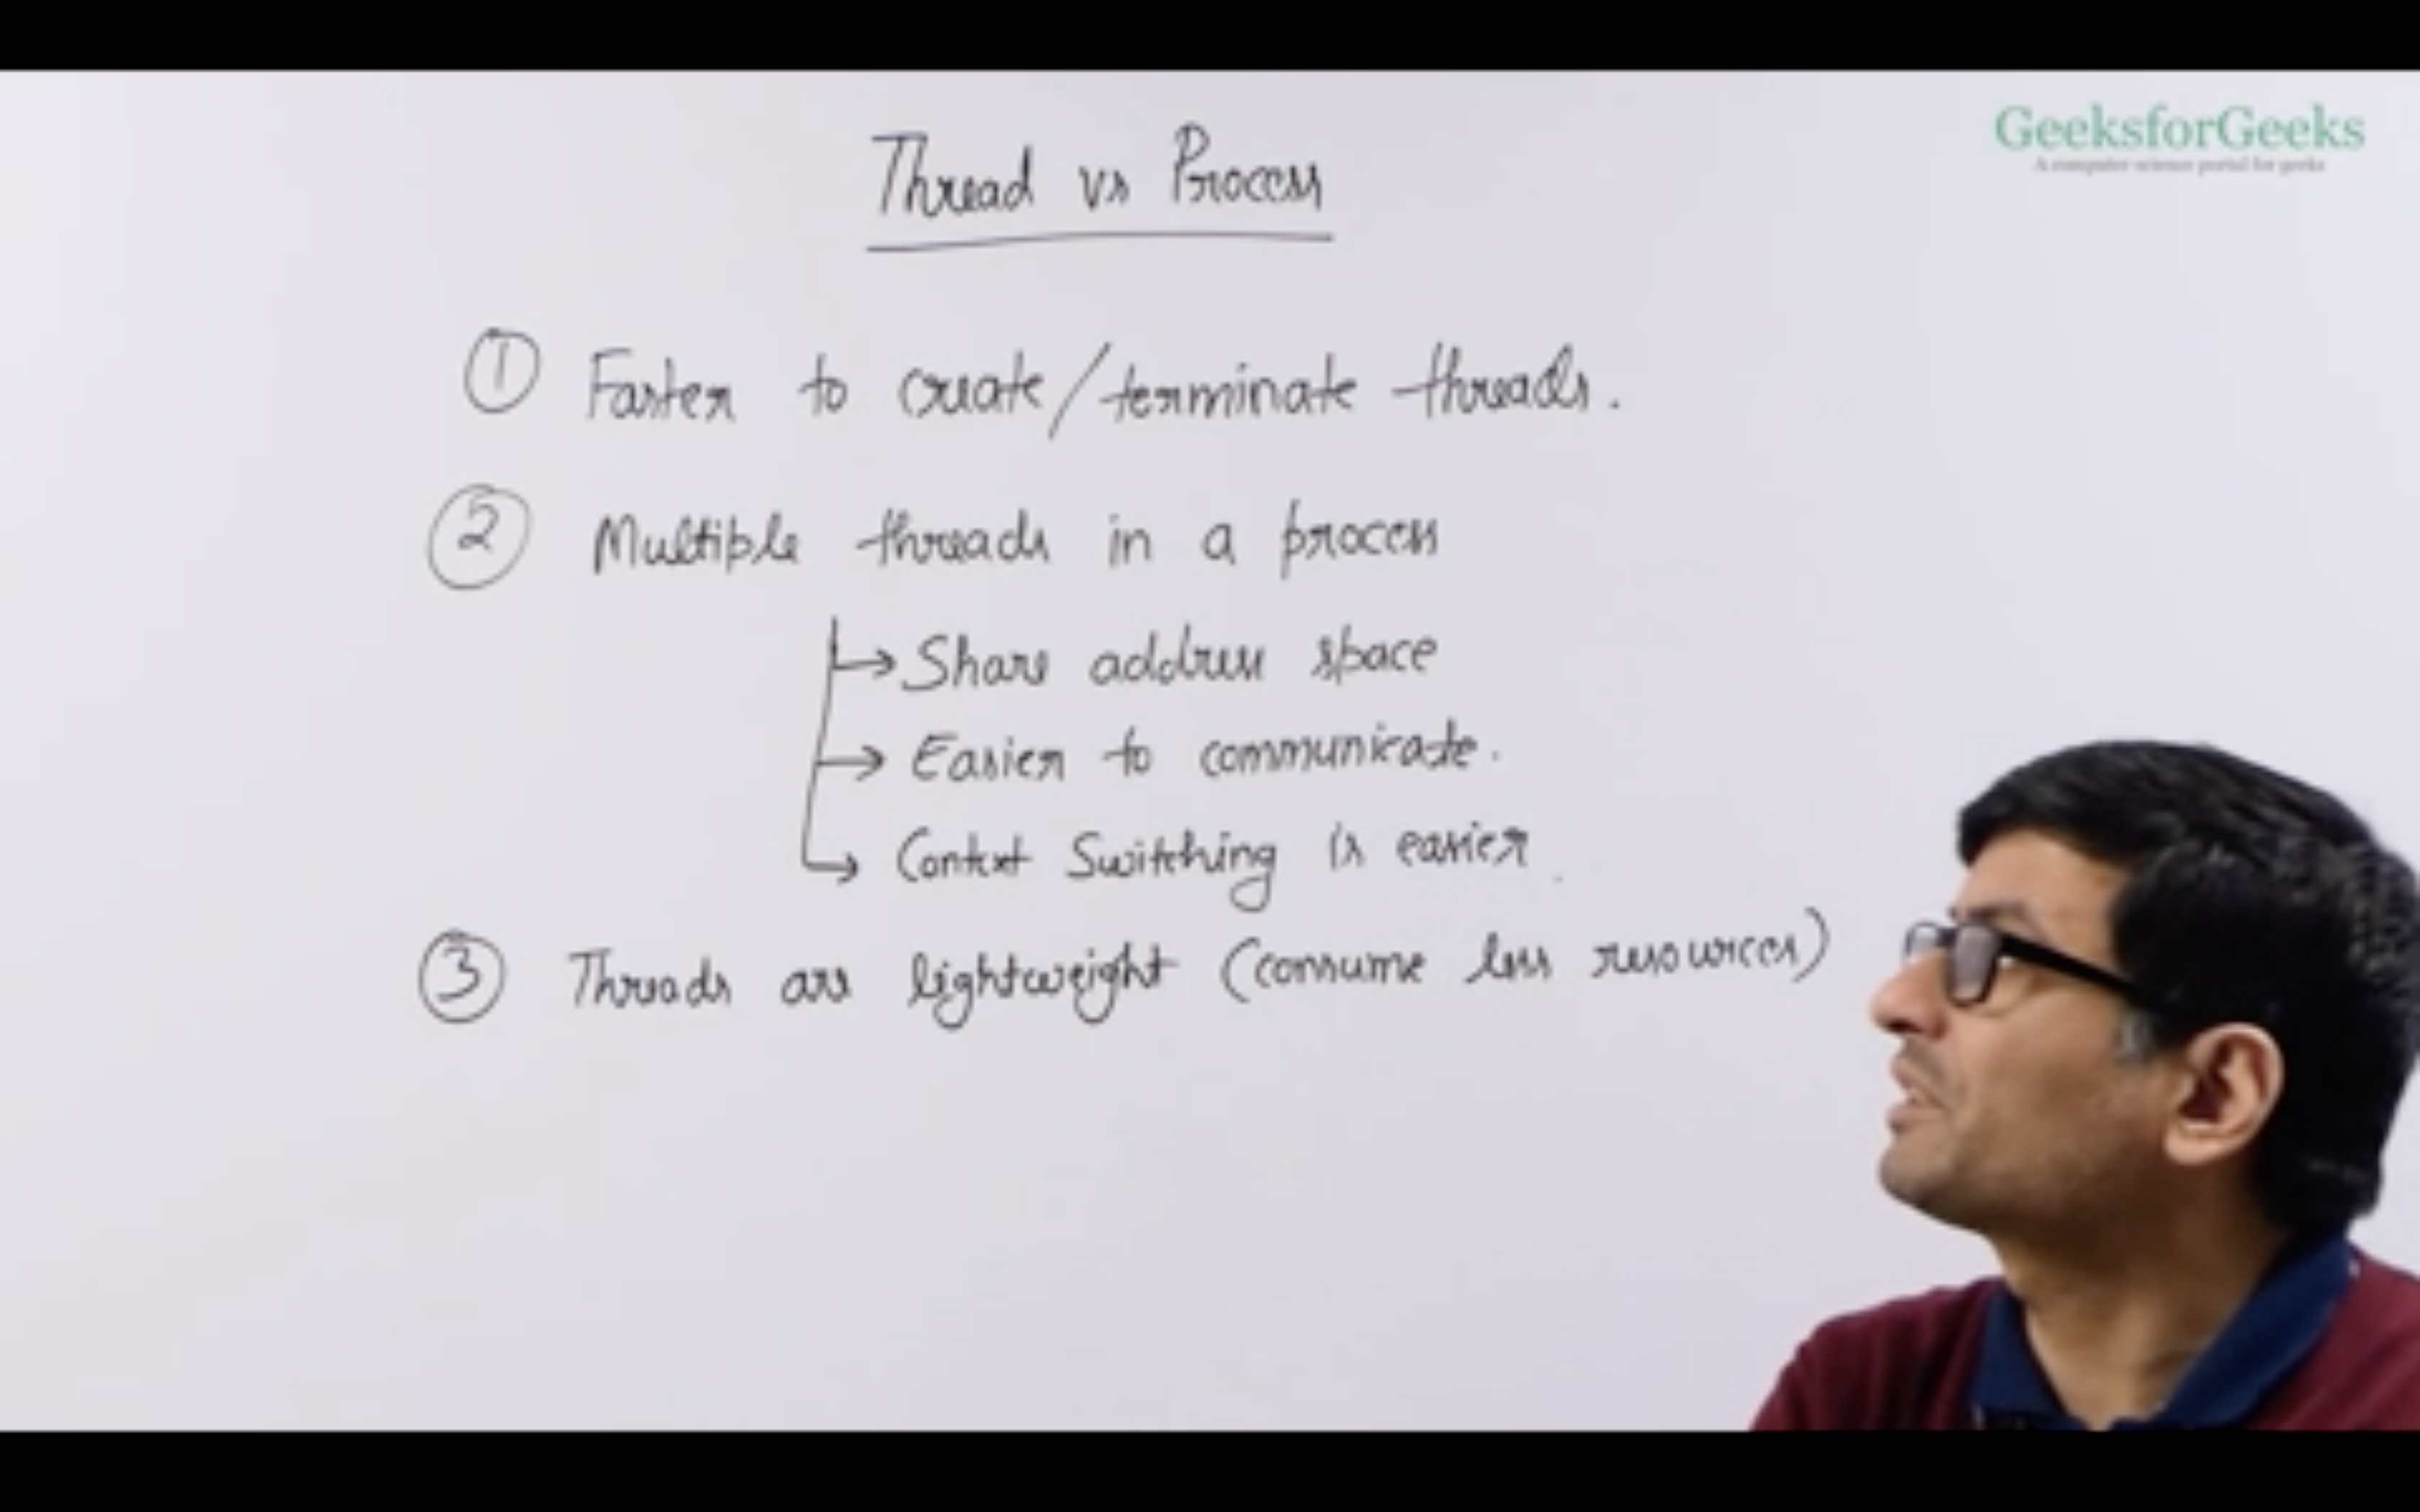 GeeksforGeeks
A computer science portal for geeks
Thread vs Process
1 Faster to create/terminate threads.
2 Multiple threads in a process
→ Share address space
→ Easier to communicate.
→ Context Switching is easier.
3 Threads are lightweight (consume less resources)